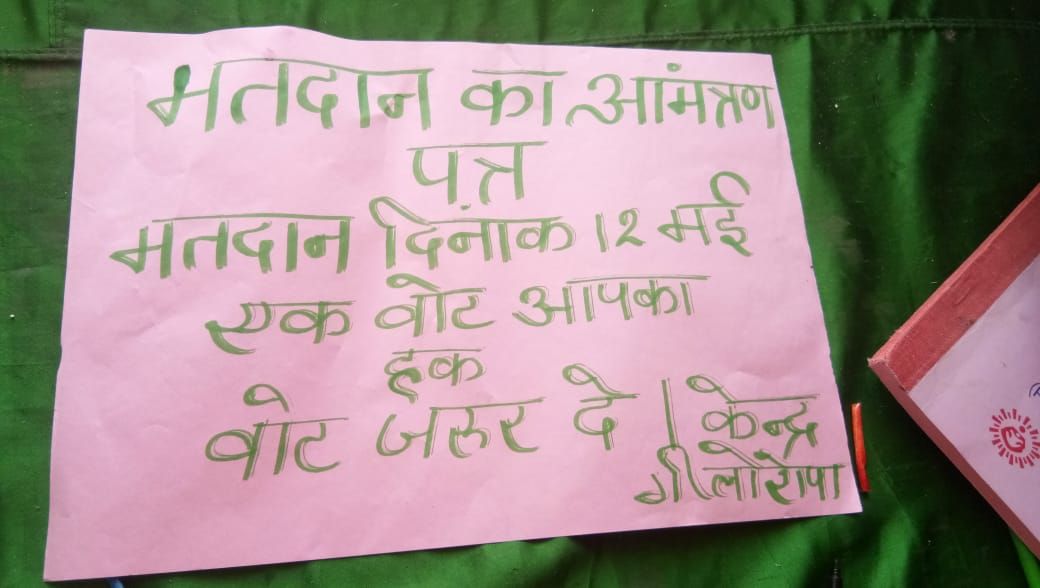 मतदान का आंमत्रण
पत्र
मतदान दिनांक 12 मई
एक वोट आपका
हक
वोट जरुर दे । केन्द्र
गीलोरोपा